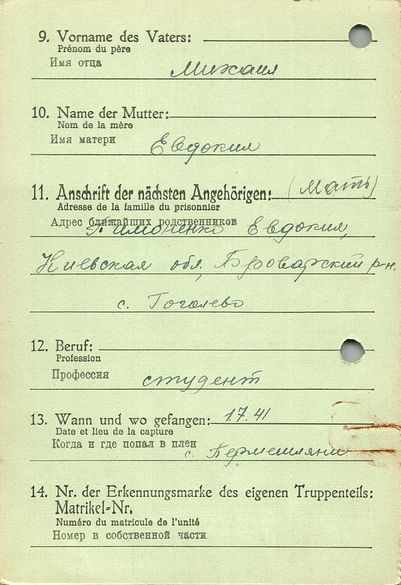 9. Vorname des Vaters:
Prénom du père
Имя отца
Михаил
10. Name der Mutter:
Nom de la mère
Имя матери
Евдокия
11. Anschrift der nächsten Angehörigen: (Мать)
Adresse de la famille du prisonnier
Адрес ближайших родственников
Тимошенко Евдокия,
Киевская обл, Броварский р-н.
с. Гоголево
12. Beruf:
Profession
Профессия
студент
13. Wann und wo gefangen: 1.7.41
Date et lieu de la capture
Когда и где попал в плен
с.
14. Nr. der Erkennungsmarke des eigenen Truppenteils:
Matrikel-Nr.
Numéro du matricule de l'unité
Номер в собственной части